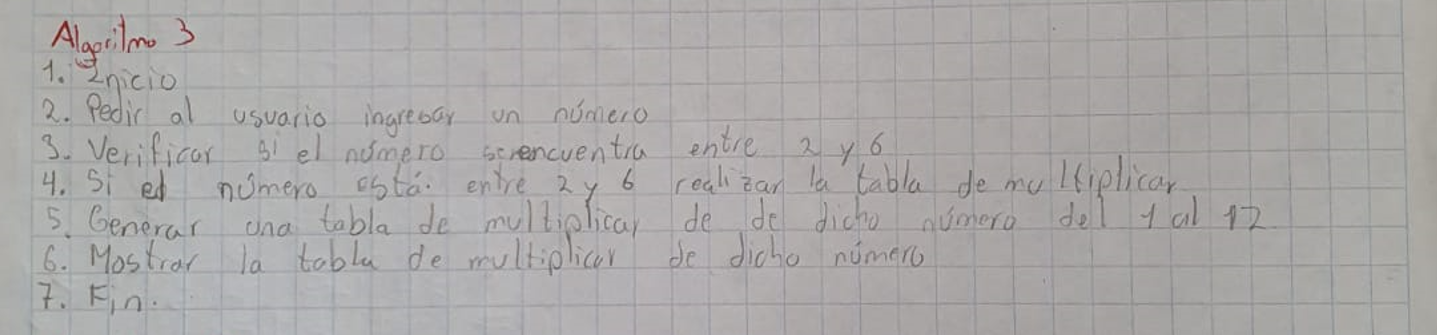 Algoritmo 3
1. Inicio
2. Pedir al usuario ingresar un número
3. Verificar si el número se encuentra entre 2 y 6
4. Si el número está entre 2 y 6 realizar la tabla de multiplicar
5. Generar una tabla de multiplicar de de dicho número del 1 al 12
6. Mostrar la tabla de multiplicar de dicho número
7. Fin.